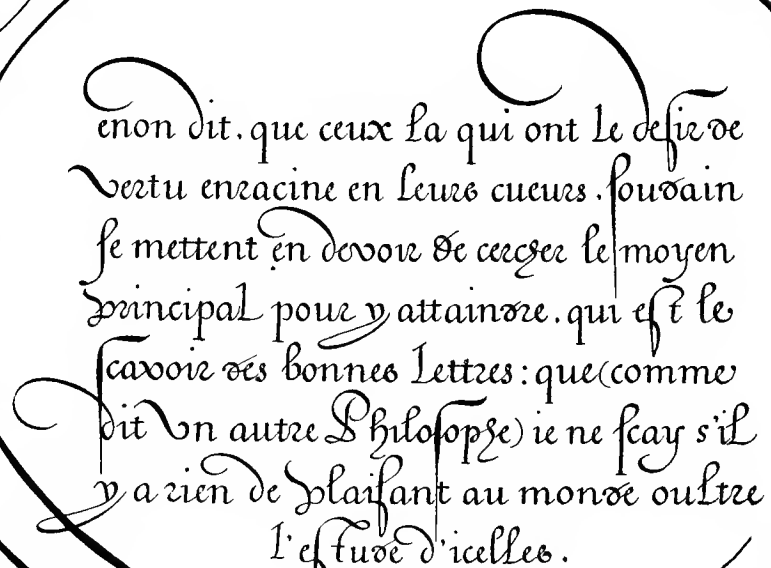 enon dit. que ceux la qui ont le desir de
vertu enracine en leurs cueurs. soudain
se mettent en devoir de cercher le moyen
principal pour y attaindre. qui est le
scavoir des bonnes lettres: que (comme
dit un autre Philosophe) ie ne scay s'il
y a rien de plaisant au monde oultre
l'estude d'icelles.